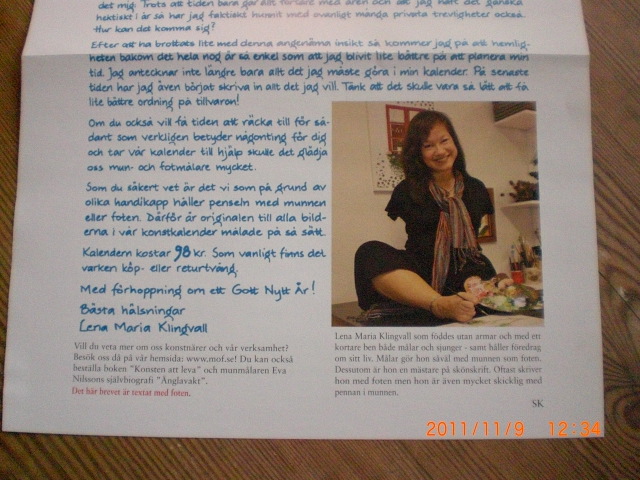 det mig. Trots att tiden bara går allt fortare med åren och att jag haft det ganska
hektiskt i år så har jag faktiskt hunnit med ovanligt många privata trevligheter också.
Hur kan det komma sig?
Efter att ha brottats lite med denna angenäma insikt så kommer jag på att hemlig-
heten bakom det hela nog är så enkel som att jag blivit lite bättre på att planera min
tid. Jag antecknar inte längre bara allt det jag måste göra i min kalender. På senaste
tiden har jag även börjat skriva in allt det jag vill. Tänk att det skulle vara så lätt att få
lite bättre ordning på tillvaron!
Om du också vill få tiden att räcka till för så-
dant som verkligen betyder någonting för dig
och tar vår kalender till hjälp skulle det glädja
oss mun- och fotmålare mycket.
Som du säkert vet är det vi som på grund av
olika handikapp håller penseln med munnen
eller foten. Därför är originalen till alla bild-
erna i vår konstkalender målade på så sätt.
Kalendern kostar 98 kr. Som vanligt finns det
varken köp- eller returtvång.
Med förhoppning om ett Gott Nytt År!
Bästa hälsningar
Lena Maria Klingvall
Vill du veta mer om oss konstnärer och vår verksamhet?
Besök oss då på vår hemsida: www.mof.se! Du kan också
beställa boken "Konsten att leva" och munmålaren Eva
Nilssons självbiografi "Änglavakt".
Det här brevet är textat med foten.
Lena Maria Klingvall som föddes utan armar och med ett
kortare ben både målar och sjunger - samt håller föredrag
om sitt liv. Målar gör hon såväl med munnen som foten.
Dessutom är hon en mästare på skönskrift. Oftast skriver
hon med foten men hon är även mycket skicklig med
pennan i munnen.
SK
2011/11/9 12:34